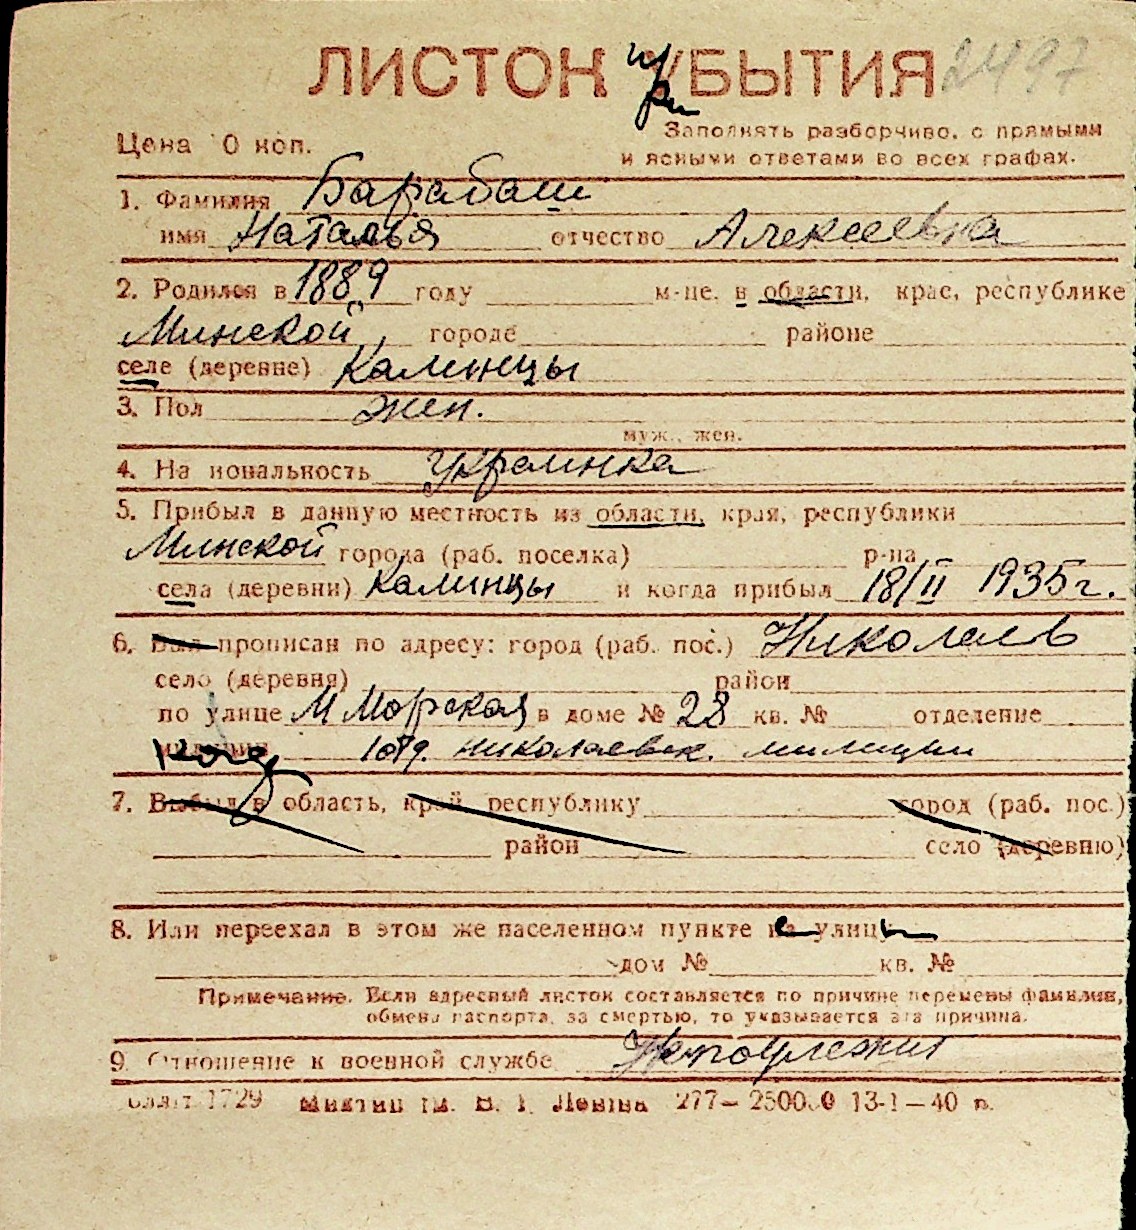 ЛИСТОК прИБЫТИЯ 2497
Цена 10 коп. Заполнять разборчиво, с прямыми
и ясными ответами во всех графах.
1. Фамилия Барабаш
имя Наталья отчество Алексеевна
2. Родился в 1889 году м-це. в области, крае, республике
Минской, городе районе
селе (деревне) Калинцы
3. Пол жен.
муж., жен.
4. Национальность Украинка
5. Прибыл в данную местность из области, края, республики
Минской города (раб. поселка) р-на
села (деревни) Калинцы и когда прибыл 18/II 1935 г.
6. Был прописан по адресу: город (раб. пос.) Николаев
село (деревня) район
по улице М Морская в доме № 28 кв. № отделение
милиции 1 отд. николаевск. милиции
7. Выбыл в область, край, республику город (раб. пос.)
район село (деревню)
8. Или переехал в этом же населенном пункте с улицы
дом № кв. №
Примечание. Если адресный листок составляется по причине перемены фамилии,
обмена паспорта, за смертью, то указывается эта причина.
9. Отношение к военной службе
1729 им. В. И. Ленина 277— 250000 13-1—40 г.